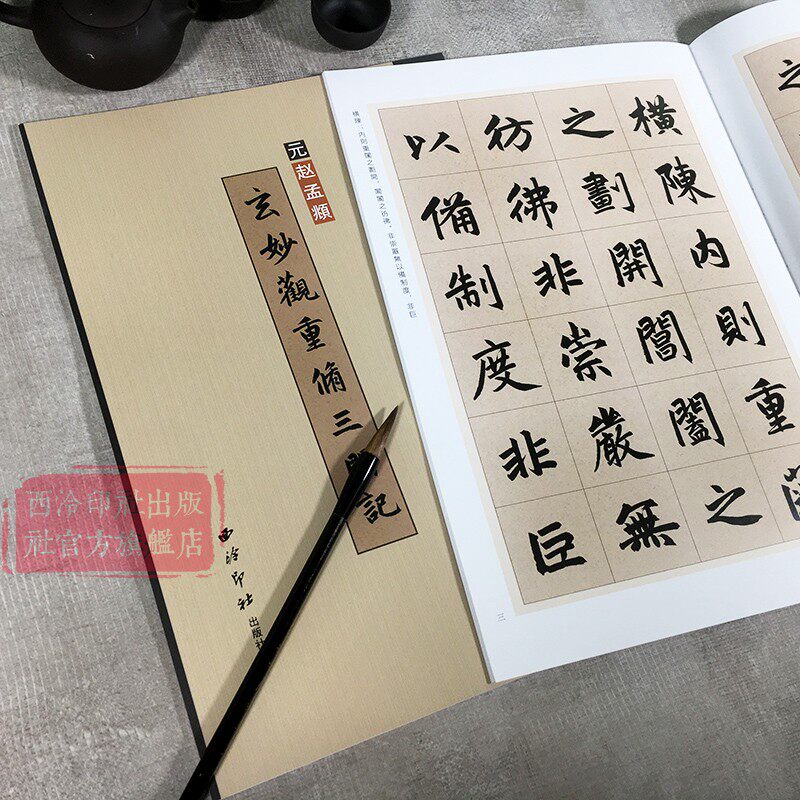 元赵孟頫
玄妙觀重脩三門記
西泠印社
出版社
西冷印社出版
社官方旗艦店
橫陳内則重
之劃開閶闔之
彷彿非崇嚴無
以備制度非巨
橫陳；内則重闥之劃開，閶闔之彷彿，非崇嚴無以備制度，非巨
三
之